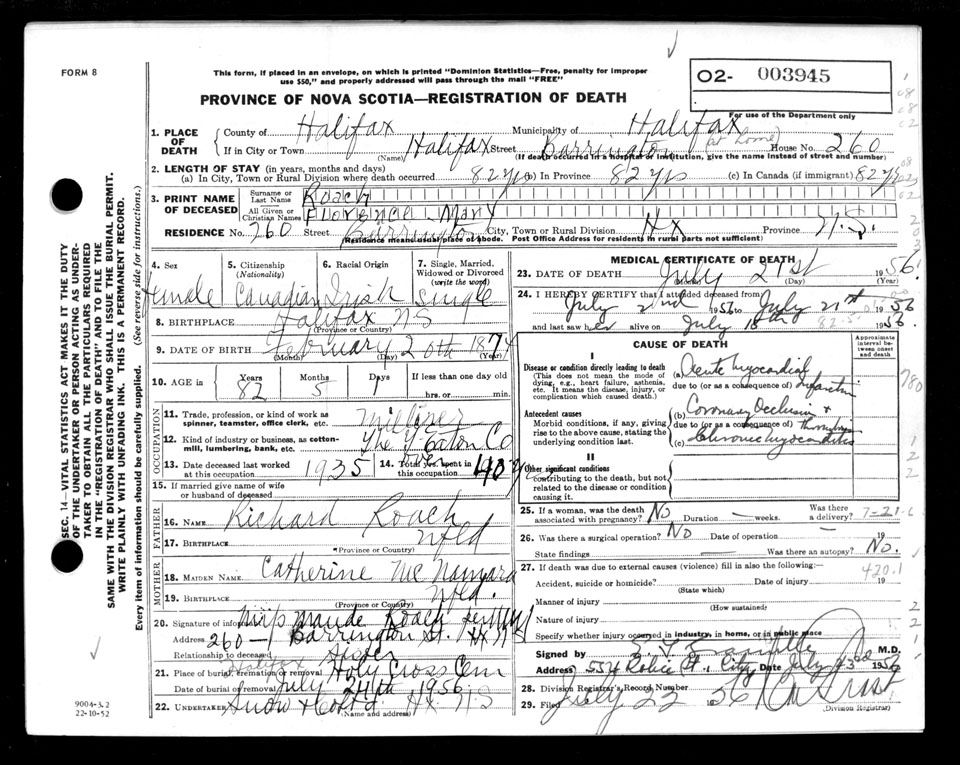 FORM 8
This form, if placed in an envelope, on which is printed "Dominion Statistics—Free, penalty for improper
use $50," and properly addressed will pass through the mail "FREE"
02- 003945
For use of the Department only
PROVINCE OF NOVA SCOTIA—REGISTRATION OF DEATH
1. PLACE OF DEATH
County of Halifax Municipality of Halifax
(at home)
If in City or Town Halifax Street Barrington House No. 260
(Name) (If death occurred in a hospital or institution, give the name instead of street and number)
2. LENGTH OF STAY (in years, months and days)
(a) In City, Town or Rural Division where death occurred 82 yrs (b) In Province 82 yrs (c) In Canada (if immigrant) 82 yrs
3. PRINT NAME OF DECEASED
Surname or Last Name Roach
All Given or Christian Names Florence Mary
RESIDENCE No. 260 Street Barrington City, Town or Rural Division Hx Province N.S.
(Residence means usual place of abode. Post Office Address for residents in rural parts not sufficient)
4. Sex 5. Citizenship 6. Racial Origin 7. Single, Married,
(Nationality) Widowed or Divorced
(write the word)
female Canadian Irish Single
8. BIRTHPLACE Halifax NS
(Province or Country)
9. DATE OF BIRTH February 20th 1874
(Month) (Day) (Year)
10. AGE in Years Months Days If less than one day old
82 5 1 hrs. or min.
OCCUPATION
11. Trade, profession, or kind of work as
spinner, teamster, office clerk, etc. Milliner
12. Kind of industry or business, as cotton-
mill, lumbering, bank, etc. The T Eaton Co
13. Date deceased last worked
at this occupation 1935
14. Total yrs. spent in
this occupation 40 yrs
15. If married give name of wife
or husband of deceased
FATHER
16. NAME Richard Roach
17. BIRTHPLACE Nfld
(Province or Country)
MOTHER
18. MAIDEN NAME Catherine McNamara
19. BIRTHPLACE Nfld.
(Province or Country)
20. Signature of informant Miss Maude Roach
Address 260 Barrington St. Hx NS
Relationship to deceased Sister
21. Place of burial, cremation or removal Halifax Holy Cross Cem
Date of burial or removal July 24th 1956
22. UNDERTAKER Snow & Co Ltd. Hx. N.S
(Name and address)
MEDICAL CERTIFICATE OF DEATH
23. DATE OF DEATH July 21st 1956
(Month) (Day)
24. I HEREBY CERTIFY that I attended deceased from
July 2nd 1956 to July 21st 1956
and last saw her alive on July 18th 1956
CAUSE OF DEATH
Approximate interval between onset and death
I
Disease or condition directly leading to death
(This does not mean the mode of
dying, e.g., heart failure, asthenia,
etc. It means the disease, injury, or
complication which caused death.)
(a) Acute Myocardial
due to (or as a consequence of) infarction
Antecedent causes
Morbid conditions, if any, giving
rise to the above cause, stating the
underlying condition last.
(b) Coronary Occlusion &
due to (or as a consequence of) Thrombosis
(c) Chronic Myocarditis
II
Other significant conditions
contributing to the death, but not
related to the disease or condition
causing it.
780
25. If a woman, was the death
associated with pregnancy? No Duration — weeks. Was there
a delivery?
26. Was there a surgical operation? No Date of operation — 19
State findings — Was there an autopsy? No.
27. If death was due to external causes (violence) fill in also the following:— 420.1
Accident, suicide or homicide? Date of injury 19
(State which)
Manner of injury
(How sustained)
Nature of injury
Specify whether injury occurred in industry, in home, or in public place
Signed by M.D.
Address Robie St., City Date July 23rd 1956
28. Division Registrar's Record Number
29. Filed July 23 1956
(Division Registrar)
SEC. 14—VITAL STATISTICS ACT MAKES IT THE DUTY
OF THE UNDERTAKER OR PERSON ACTING AS UNDER-
TAKER TO OBTAIN ALL THE PARTICULARS REQUIRED
IN THE "REGISTRATION OF DEATH" AND TO FILE THE
SAME WITH THE DIVISION REGISTRAR WHO SHALL ISSUE THE BURIAL PERMIT.
WRITE PLAINLY WITH UNFADING INK. THIS IS A PERMANENT RECORD.
Every item of information should be carefully supplied. (See reverse side for instructions.)
9004-3.2
22-10-52